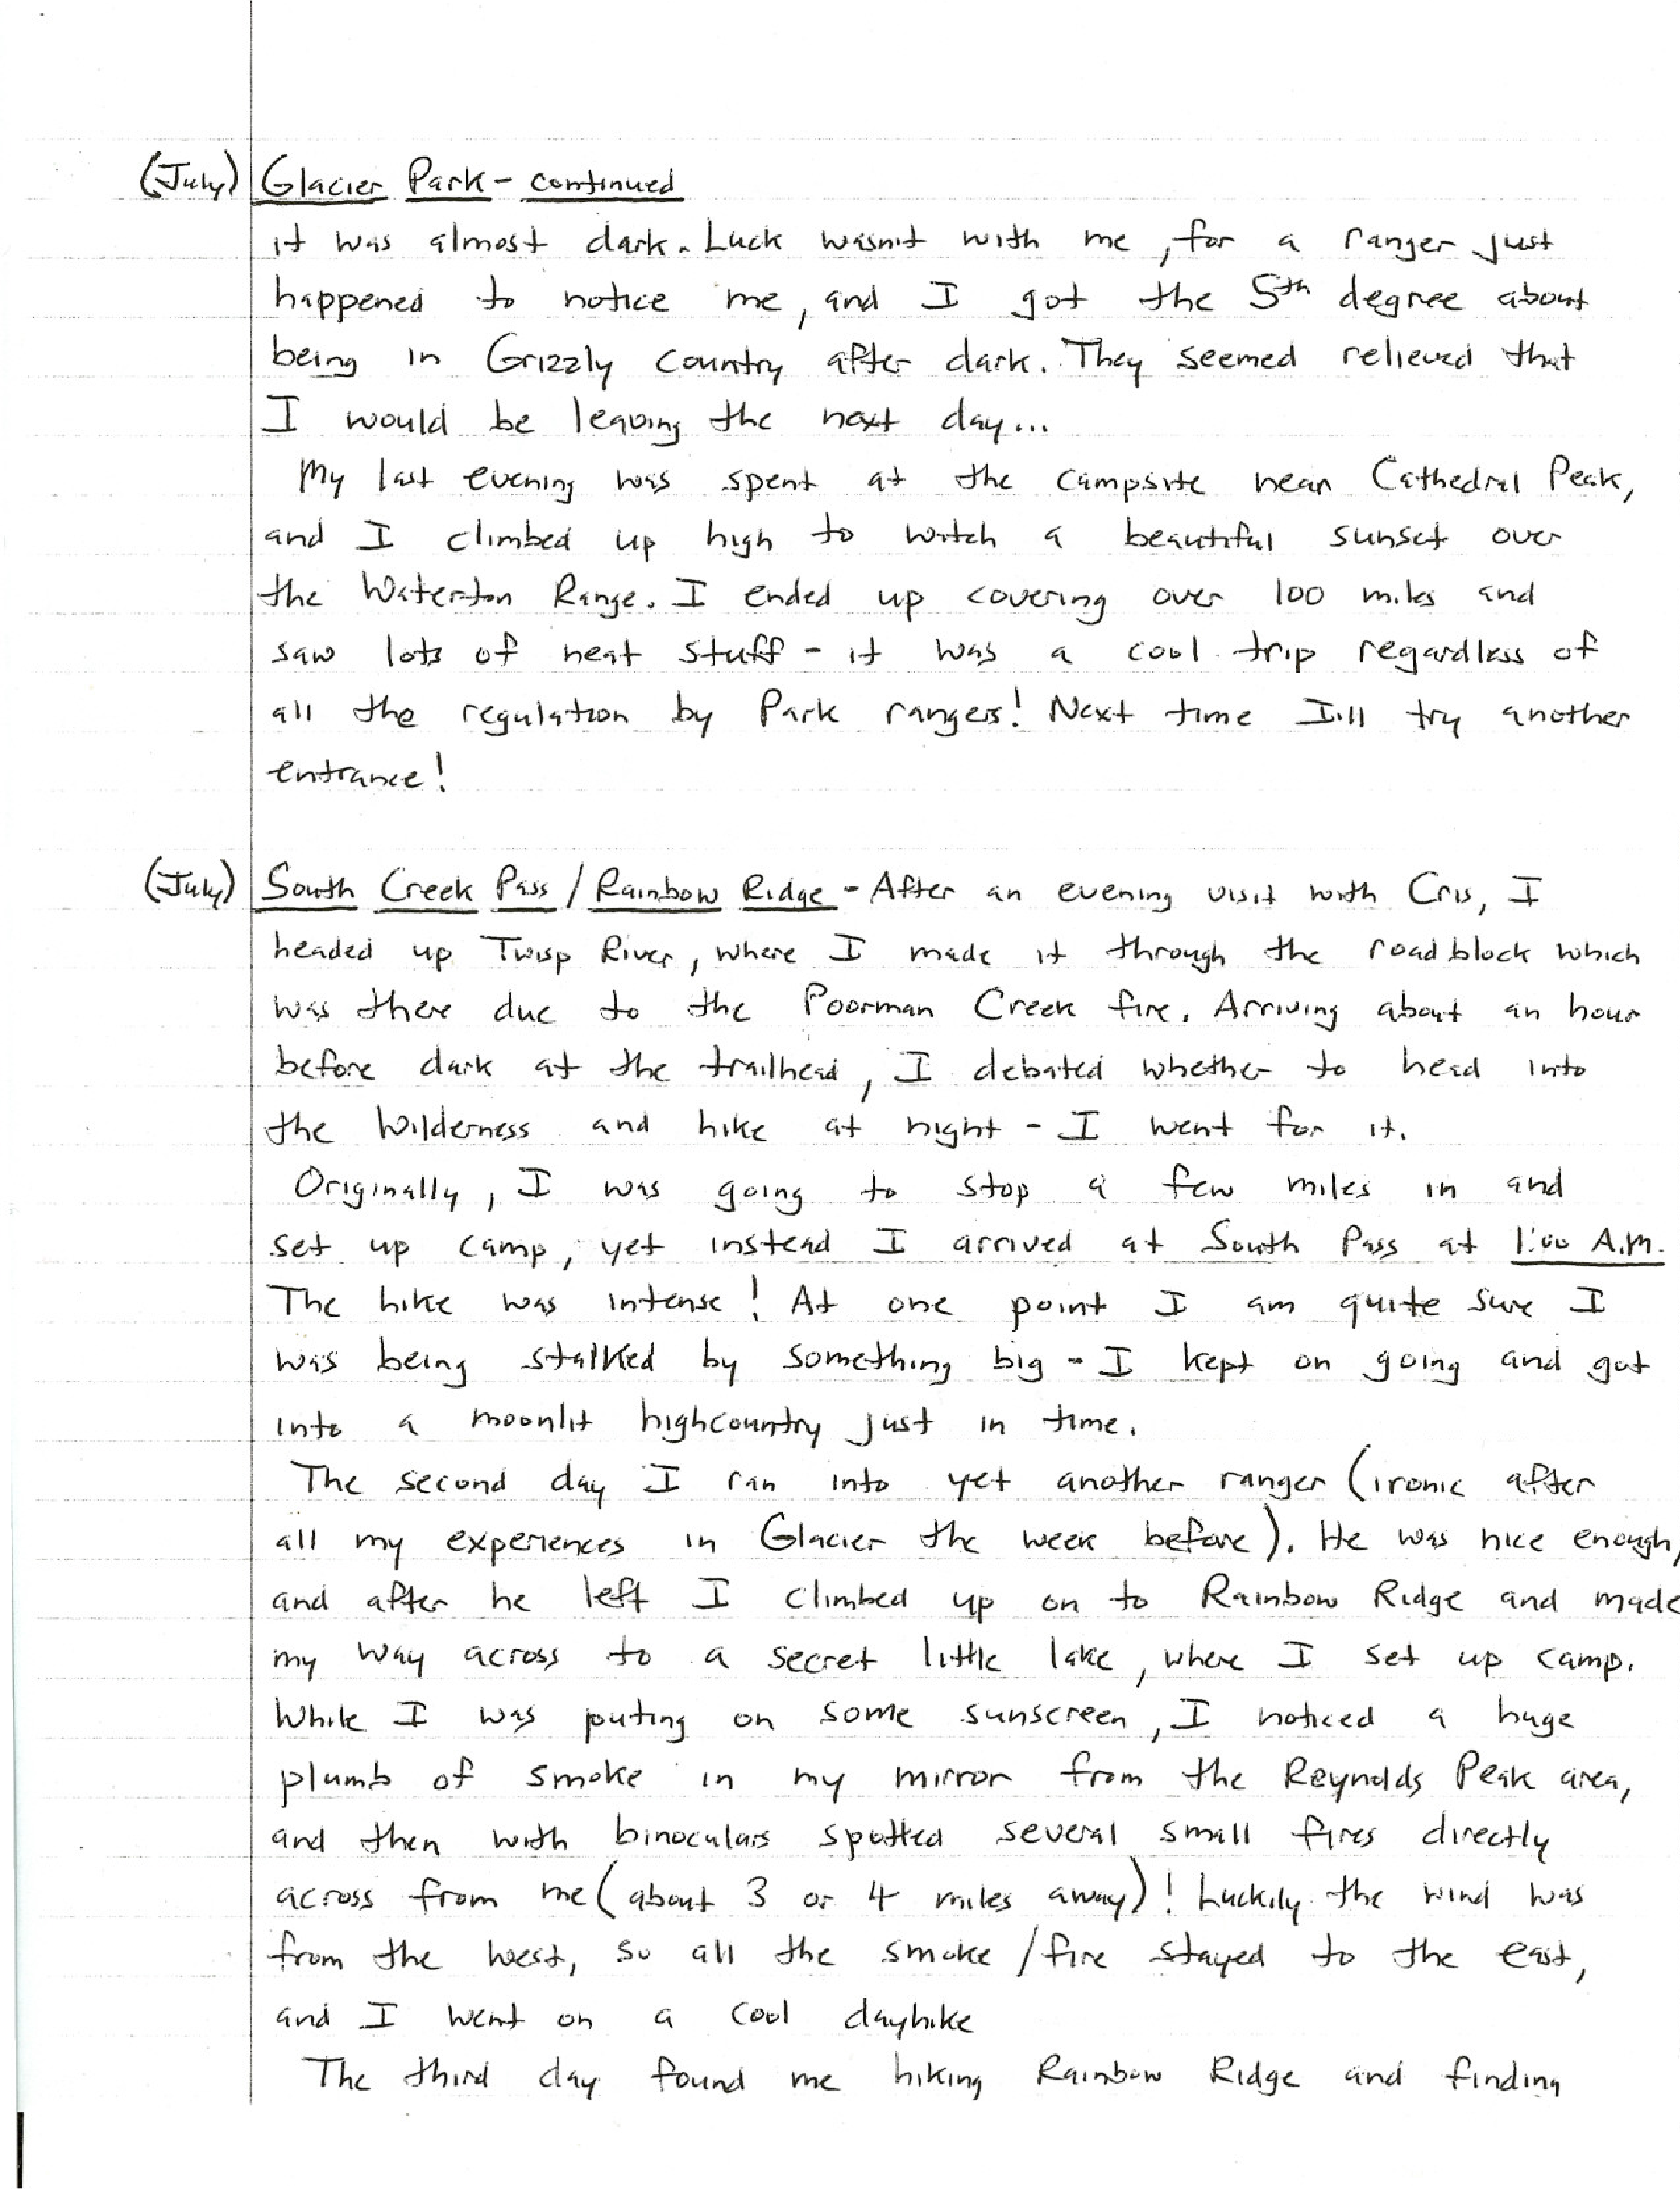 (July) Glacier Park - continued
it was almost dark. Luck wasn't with me, for a ranger just
happened to notice me, and I got the 5th degree about
being in Grizzly country after dark. They seemed relieved that
I would be leaving the next day...
My last evening was spent at the campsite near Cathedral Peak,
and I climbed up high to watch a beautiful sunset over
the Waterton Range. I ended up covering over 100 miles and
saw lots of neat stuff - it was a cool trip regardless of
all the regulation by Park rangers! Next time I'll try another
entrance!
(July) South Creek Pass / Rainbow Ridge - After an evening visit with Cris, I
headed up Twisp River, where I made it through the roadblock which
was there due to the Poorman Creek fire. Arriving about an hour
before dark at the trailhead, I debated whether to head into
the Wilderness and hike at night - I went for it.
Originally, I was going to stop a few miles in and
set up camp, yet instead I arrived at South Pass at 1:00 A.M.
The hike was intense! At one point I am quite sure I
was being stalked by something big - I kept on going and got
into a moonlit highcountry just in time.
The second day I ran into yet another ranger (ironic after
all my experiences in Glacier the week before). He was nice enough,
and after he left I climbed up on to Rainbow Ridge and made
my way across to a secret little lake, where I set up camp.
While I was puting on some sunscreen, I noticed a huge
plumb of smoke in my mirror from the Reynolds Peak area,
and then with binoculars spotted several small fires directly
across from me (about 3 or 4 miles away)! Luckily the wind was
from the west, so all the smoke / fire stayed to the east,
and I went on a cool dayhike
The third day found me hiking Rainbow Ridge and finding